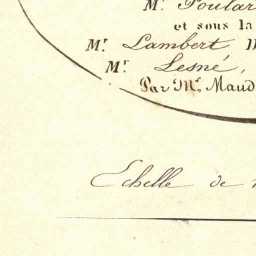 Mr. Poular
et sous la
Mr. Lambert
Mr. Lesné,
Par Mr. Maud
Echelle de